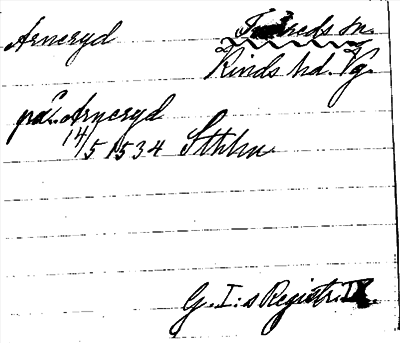 Arneryd Tvärreds sn.
Kinds hd. Vg.
på Arneryd
14/5 1534 Sthlm
G. I:s Registr. IX.